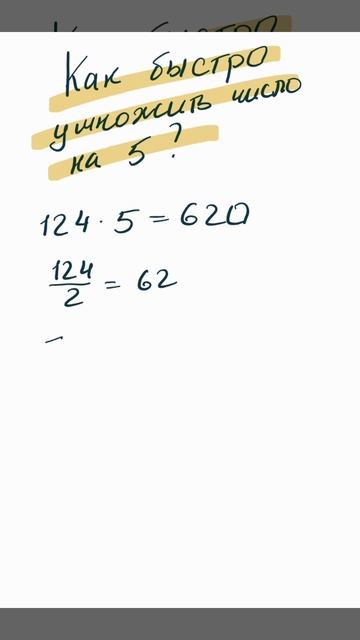 Как быстро
умножить число
на 5?
124 · 5 = 620
124
2
= 62